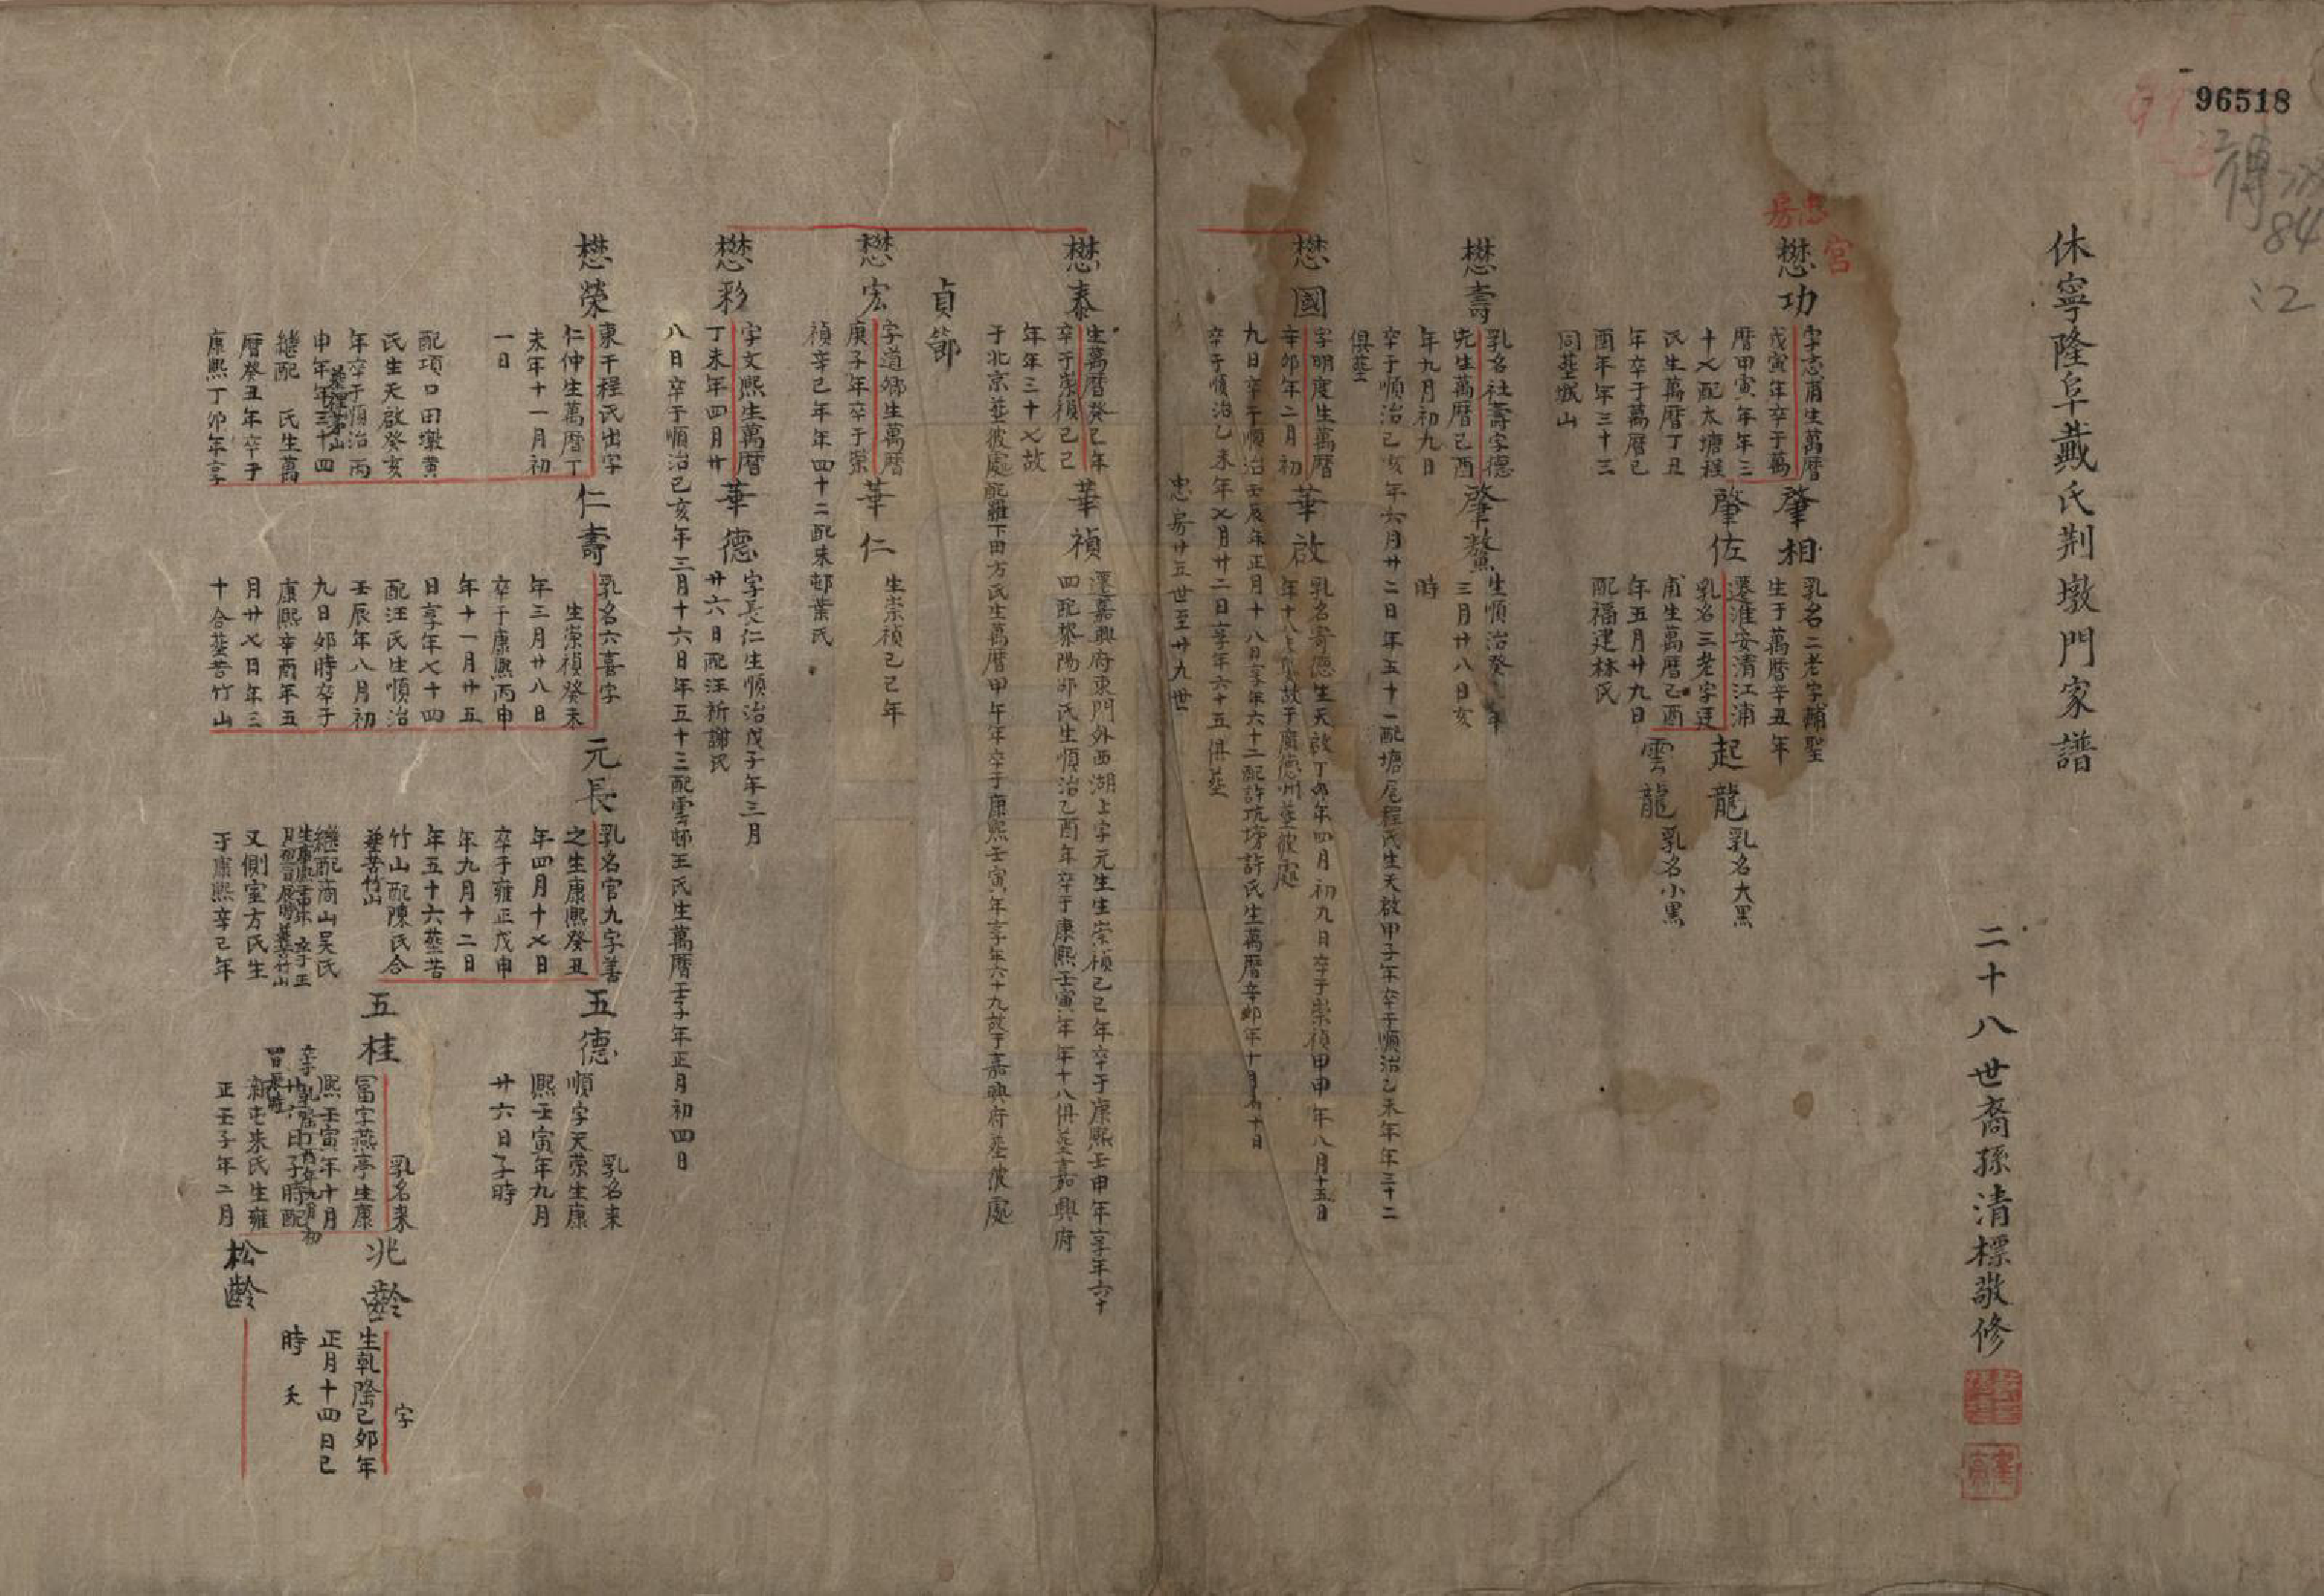 96518
傅
84
12
休寧隆阜戴氏荆墩門家譜
二十八世裔孫清標敬修
忠房
宮
懋功
字志甫生萬曆
戊寅年卒于萬
曆甲寅年年三
十七配太塘程
氏生萬曆丁丑
年卒于萬曆己
酉年年三十三
同塟城山
肇相
乳名二老字輔聖
生于萬曆辛丑年
遷淮安清江浦
肇佐
乳名三老字廷
甫生萬曆己酉
年五月廿九日
配福建林氏
起龍
乳名大黑
雲龍
乳名小黑
懋壽
乳名社壽字德
先生萬曆己酉
年九月初九日
卒于順治己亥年六月廿二日年五十一配塘尾程氏生天啟甲子年卒于順治乙未年年三十二
俱塟
肇鰲
生順治癸 年
三月廿八日亥
時
懋國
字明度生萬曆
辛卯年二月初
九日卒于順治壬辰年正月十八日享年六十二配許坑塝許氏生萬曆辛卯年十月 十日
卒于順治乙未年七月廿二日享年六十五俱塟
華啟
乳名寄德生天啟丁卯年四月初九日卒于崇禎甲申年八月十五日
年十八 故于廣德州塟彼處
忠房廿五世至廿九世
懋泰
生萬曆癸巳年
卒于崇禎己巳
年年三十七故
于北京塟彼處配羅下田方氏生萬曆甲午年卒于康熙壬寅年享年六十九故于嘉興府塟彼處
華禎
遷嘉興府東門外西湖上字元生生崇禎己巳年卒于康熙壬申年享年六十
四配黎陽邵氏生順治乙酉年卒于康熙壬寅年年十八俱塟嘉興府
貞節
懋宏
字道鄉生萬曆
庚子年卒于崇
禎辛巳年年四十二配朱邨葉氏
華仁
生崇禎己巳年
懋彩
字文熙生萬曆
丁未年四月廿
八日卒于順治己亥年三月十六日年五十三配雲邨王氏生萬曆壬子年正月初四日
華德
字長仁生順治戊子年三月
廿六日配汪祈謝氏
懋榮
東干程氏出字
仁仲生萬曆丁
未年十一月初
一日
配項口田墩黄
氏生天啟癸亥
年卒于順治丙
申年年三十四
繼配 氏生萬
曆癸丑年卒于
康熙丁卯年享
仁壽
乳名六喜字
生崇禎癸未
年三月廿八日
卒于康熙丙申
年十一月廿五
日享年七十四
配汪氏生順治
壬辰年八月初
九日卯時卒于
康熙辛酉年五
月廿七日年三
十合塟苦竹山
元長
乳名官九字善
之生康熙癸丑
年四月十七日
卒于雍正戊申
年九月十二日
年五十六塟苦
竹山配陳氏合
塟苦竹山
繼配商山吴氏
又側室方氏生
于康熙辛巳年
五德
乳名來
順字天榮生康
熙壬寅年九月
廿六日子時
五桂
乳名來
富字燕亭生康
熙壬寅年十月
廿六日子時配
新屯朱氏生雍
正壬子年二月
兆齡
字
生乹隆己卯年
正月十四日巳
時 夭
松齡